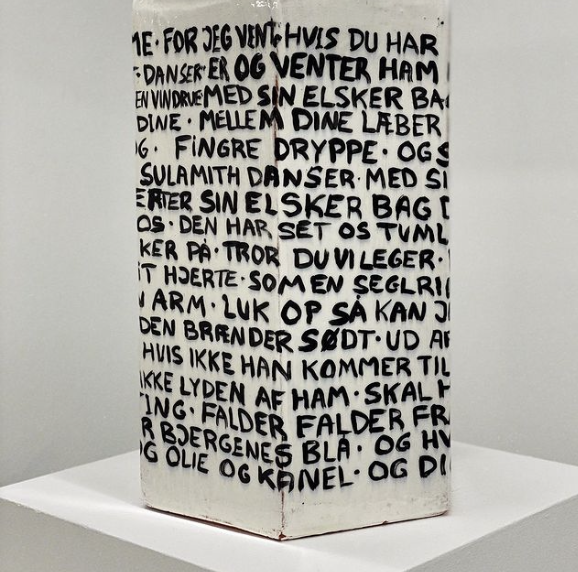 ME · FOR JEG VENT · HVIS DU HAR
DANSER · ER OG VENTER HAM
EN VINDRUE MED SIN ELSKER BA
DINE · MELLEM DINE LÆBER
G · FINGRE DRYPPE · OG S
SULAMITH DANSER · MED SI
EFTER SIN ELSKER BAG D
OS · DEN HAR SET OS TUML
KER PÅ · TROR DU VI LEGER ·
IT HJERTE · SOM EN SEGLRI
ARM · LUK OP SÅ KAN J
DEN BRÆNDER SØDT · UD AF
HVIS IKKE HAN KOMMER TIL
IKKE LYDEN AF HAM · SKAL H
TING · FALDER FALDER FR
R BJERGENES BLÅ · OG HV
OG OLIE OG KANEL · OG DI